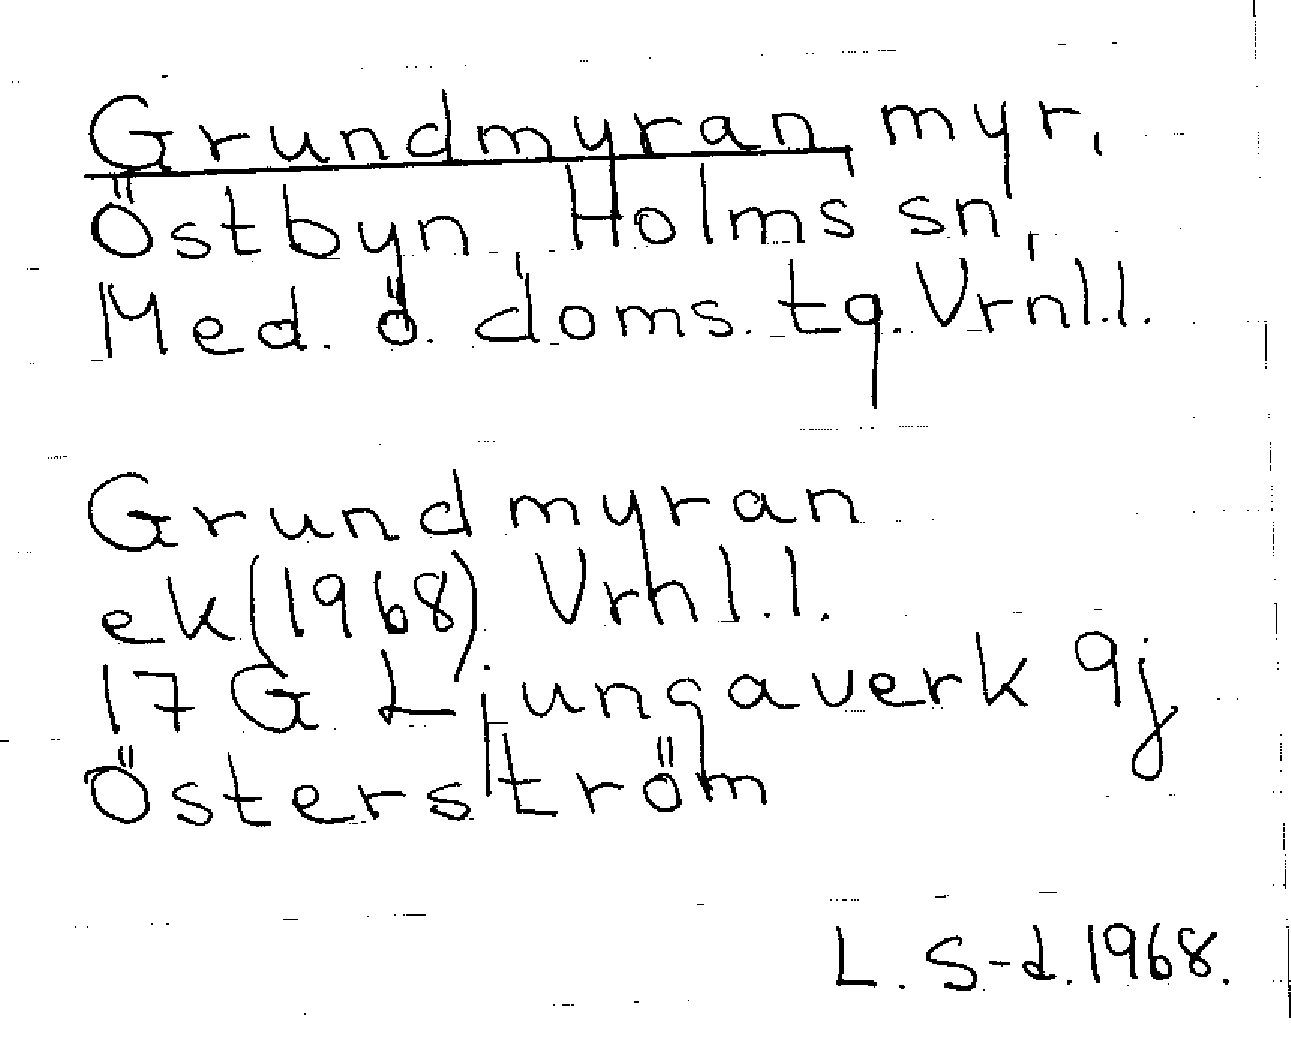 Grundmyran, myr,
Östbyn, Holms sn,
Med. ö. doms. tg. Vrnl.l.
Grundmyran
ek(1968) Vrnl.l.
17 G Ljungaverk 9j
Österström
L. S-d. 1968.